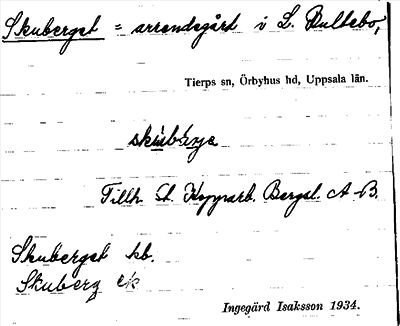 Skuberget = arrendegård i L. Bultebo,
Tierps sn, Örbyhus hd, Uppsala län.
Tillh. St. Kopparb. Bergsl. A-B.
Skuberget kb.
Skuberg
Ingegärd Isaksson 1934.